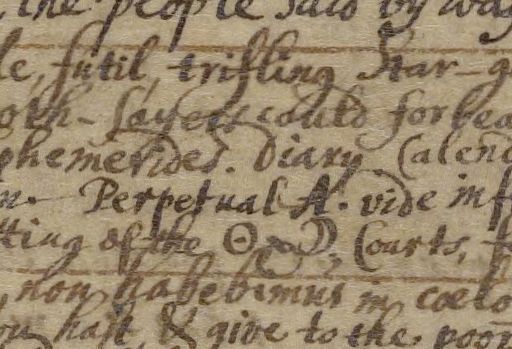 the people said by way
le, futil, trifling star-g
oth-sayers could forbea
phemerides. Diary Calend
n. Perpetual A. vide inf
tting of the ☉ & ☽, Courts, f
non habebimus in cœlo
ou hast, & give to the poor